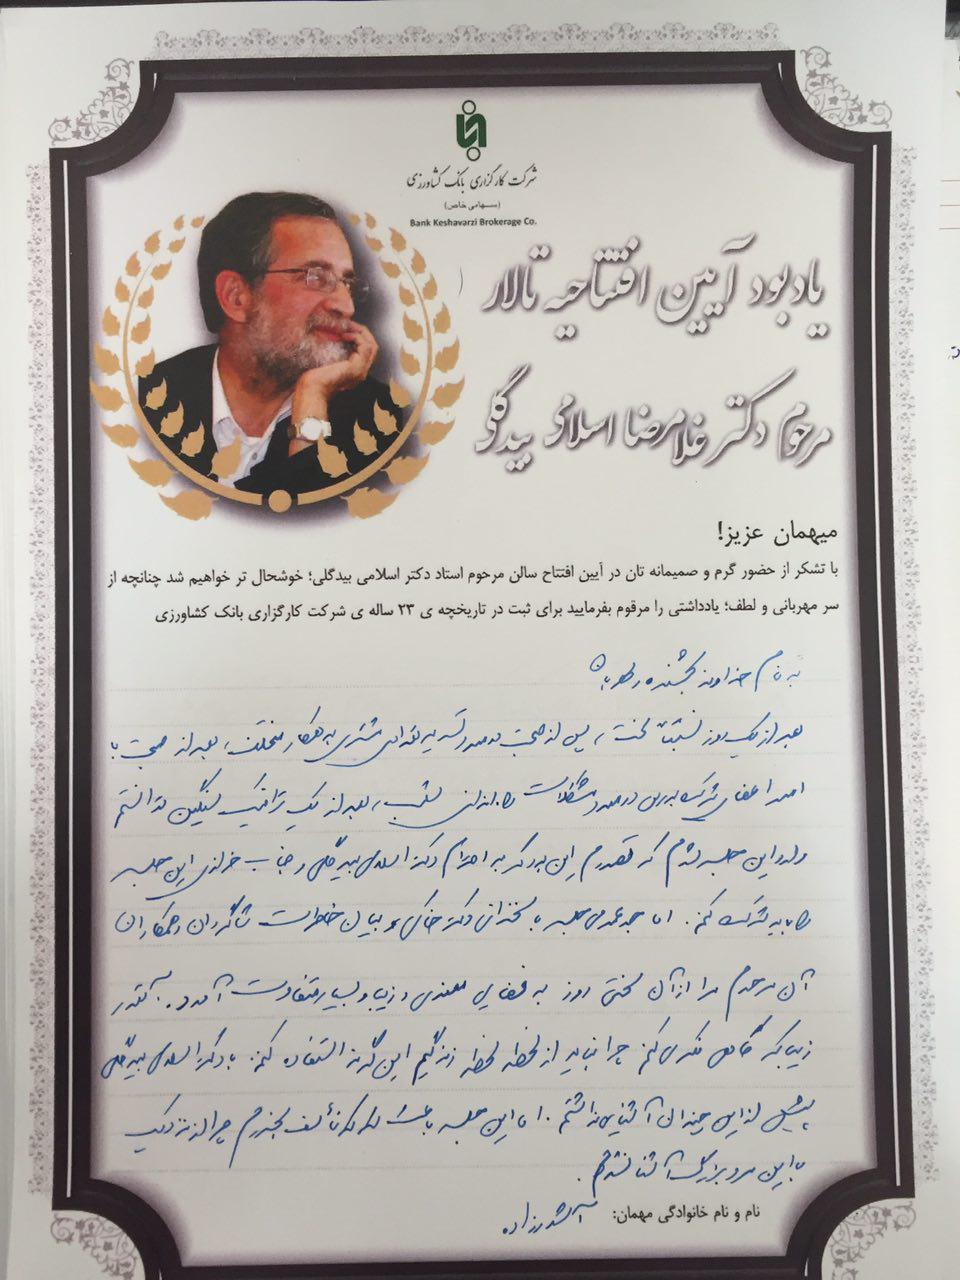 شرکت کارگزاری بانک کشاورزی
(سهامی خاص)
Bank Keshavarzi Brokerage Co.
یادبود آیین افتتاحیه تالار
مرحوم دکتر غلامرضا اسلامی بیدگلی
میهمان عزیز!
با تشکر از حضور گرم و صمیمانه تان در آیین افتتاح سالن مرحوم استاد دکتر اسلامی بیدگلی؛ خوشحال تر خواهیم شد چنانچه از
سر مهربانی و لطف؛ یادداشتی را مرقوم بفرمایید برای ثبت در تاریخچه ی ۲۳ ساله ی شرکت کارگزاری بانک کشاورزی
به نام خداوند بخشنده مهربان
بعد از یک روز نسبتاً سخت، پس از صحبت در مورد مشتری به همکار مختلف، بعد از صحبت با
اعضای شرکت بورس در مورد مشکلات بعد از یک ترافیک سنگین توانستم
وارد این جلسه شدم که قصدم این بود که به احترام دکتر اسلامی بیدگلی و جناب این جلسه
را باید شرکت کنم. اما جلسه با سخنرانی دکتر خاکی و بیان خاطرات شاگردان و همکاران
آن مرحوم مرا از آن سختی روز به فضایی معنوی و زیبا و بسیار متفاوت آورد. آنقدر
زیبا که گاهی فکر می کنم چرا نباید از لحظه لحظه زندگیم این گونه استفاده کنم. با دکتر اسلامی بیدگلی
پیش از این چندان آشنایی نداشتم. اما این جلسه باعث شد که تأسف بخورم چرا از نزدیک
با این مرد بزرگ آشنا نشدم.
نام و نام خانوادگی مهمان: